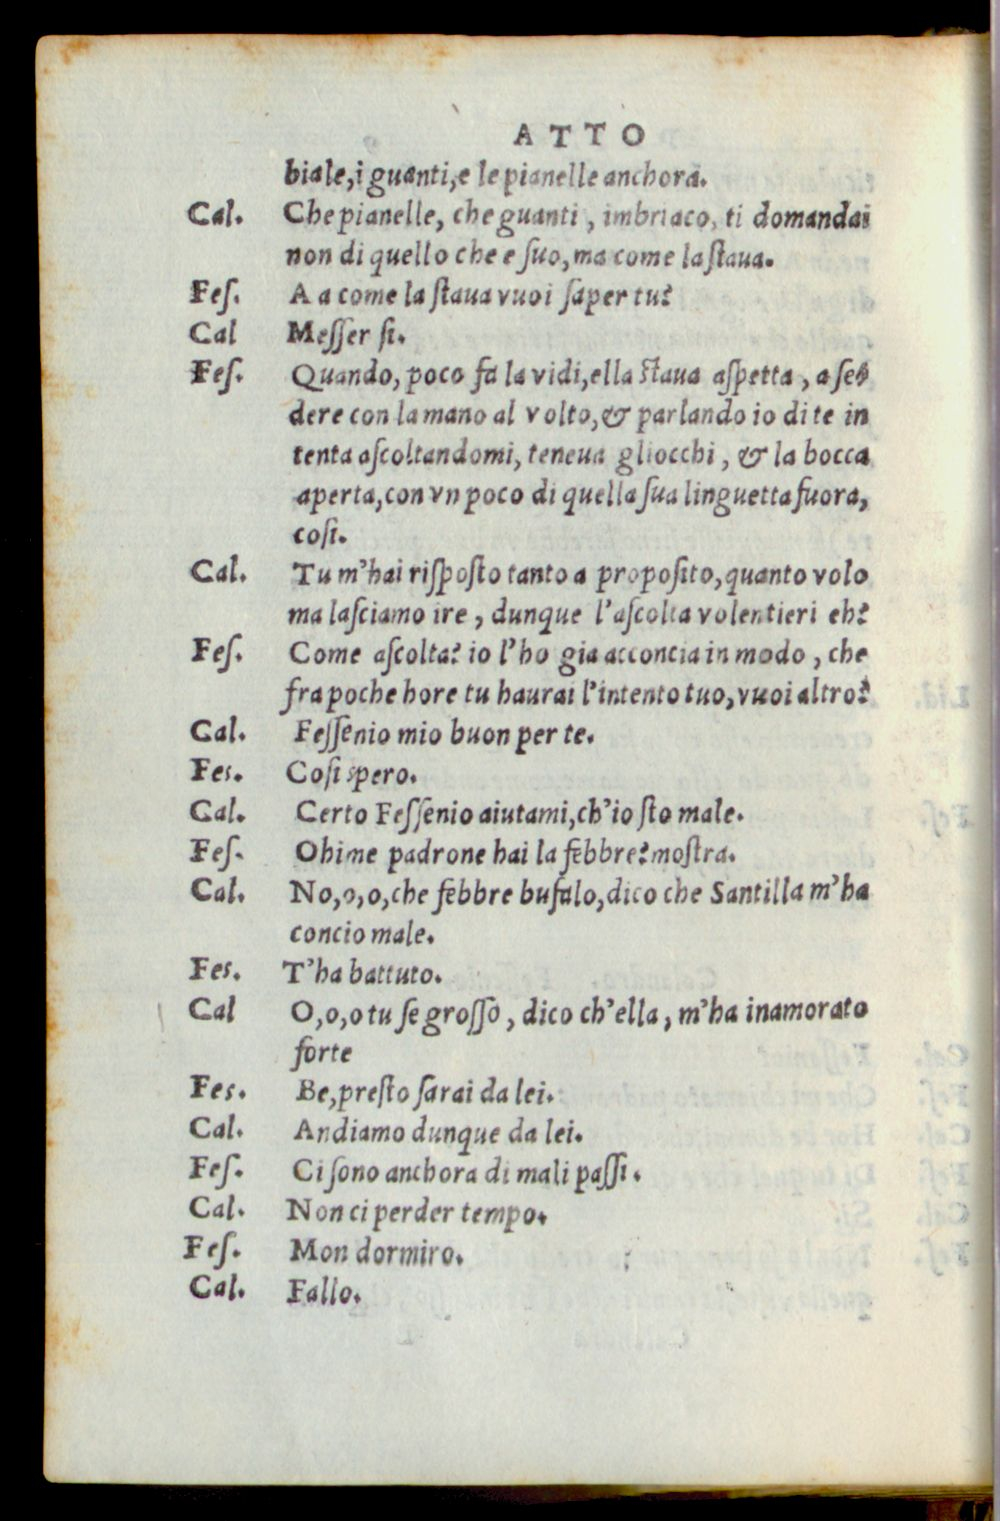 ATTO
biale, i guanti, e le pianelle anchora.
Cal. Che pianelle, che guanti, imbriaco, ti domandai
non di quello che e ſuo, ma come la ſtaua.
Feſ. A a come la ſtaua vuoi ſaper tu?
Cal Meſſer ſi.
Feſ. Quando, poco fa la vidi, ella ſtaua aſpetta, a ſe
dere con la mano al volto, & parlando io di te in
tenta aſcoltandomi, teneua gliocchi, & la bocca
aperta, con vn poco di quella ſua linguetta fuora,
coſi.
Cal. Tu m'hai riſpoſto tanto a propoſito, quanto volo
ma laſciamo ire, dunque l'aſcolta volentieri eh?
Feſ. Come aſcolta? io l'ho gia acconcia in modo, che
fra poche hore tu haurai l'intento tuo, vuoi altro?
Cal. Feſſenio mio buon per te.
Fes. Coſi spero.
Cal. Certo Feſſenio aiutami, ch'io ſto male.
Feſ. Ohime padrone hai la febbre? moſtra.
Cal. No, o, o, che febbre bufalo, dico che Santilla m'ha
concio male.
Fes. T'ha battuto.
Cal O, o, o tu ſe groſſo, dico ch'ella, m'ha inamorato
forte
Fes. Be, preſto ſarai da lei.
Cal. Andiamo dunque da lei.
Feſ. Ci ſono anchora di mali paſſi.
Cal. Non ci perder tempo.
Feſ. Mon dormiro.
Cal. Fallo.